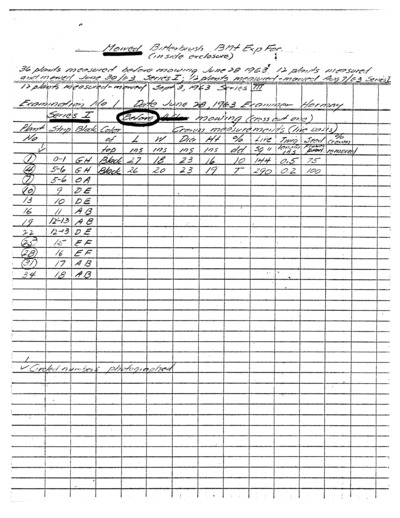 Mowed Bitterbrush BMt Exp For.
(inside exclosure)
36 plants measured before mowing June 28 1963; 12 plants measured
and mowed June 30/63 Series I; 12 plants measured-mowed Aug 7/63 Series II
12 plants measured-mowed Sept 3, 1963 Series III
Examination No 1 Date June 28, 1963 Examiner Hormay
Series I Before mowing (cross out one)
Plant Strip Block Color Crown measurements (live units)
No of L W Dia Ht % Live Twig Seed % crown
top ins ins ins ins dd Sq " ins removed
1 0-1 GH Black 27 18 23 16 10 144 0.5 75
4 5-6 GH Black 26 20 23 19 T 290 0.2 100
7 5-6 OA
10 9 DE
13 10 DE
16 11 AB
19 12-13 AB
22 12-13 DE
25 15 EF
28 16 EF
31 17 AB
34 18 AB
√ Circled numbers photographed